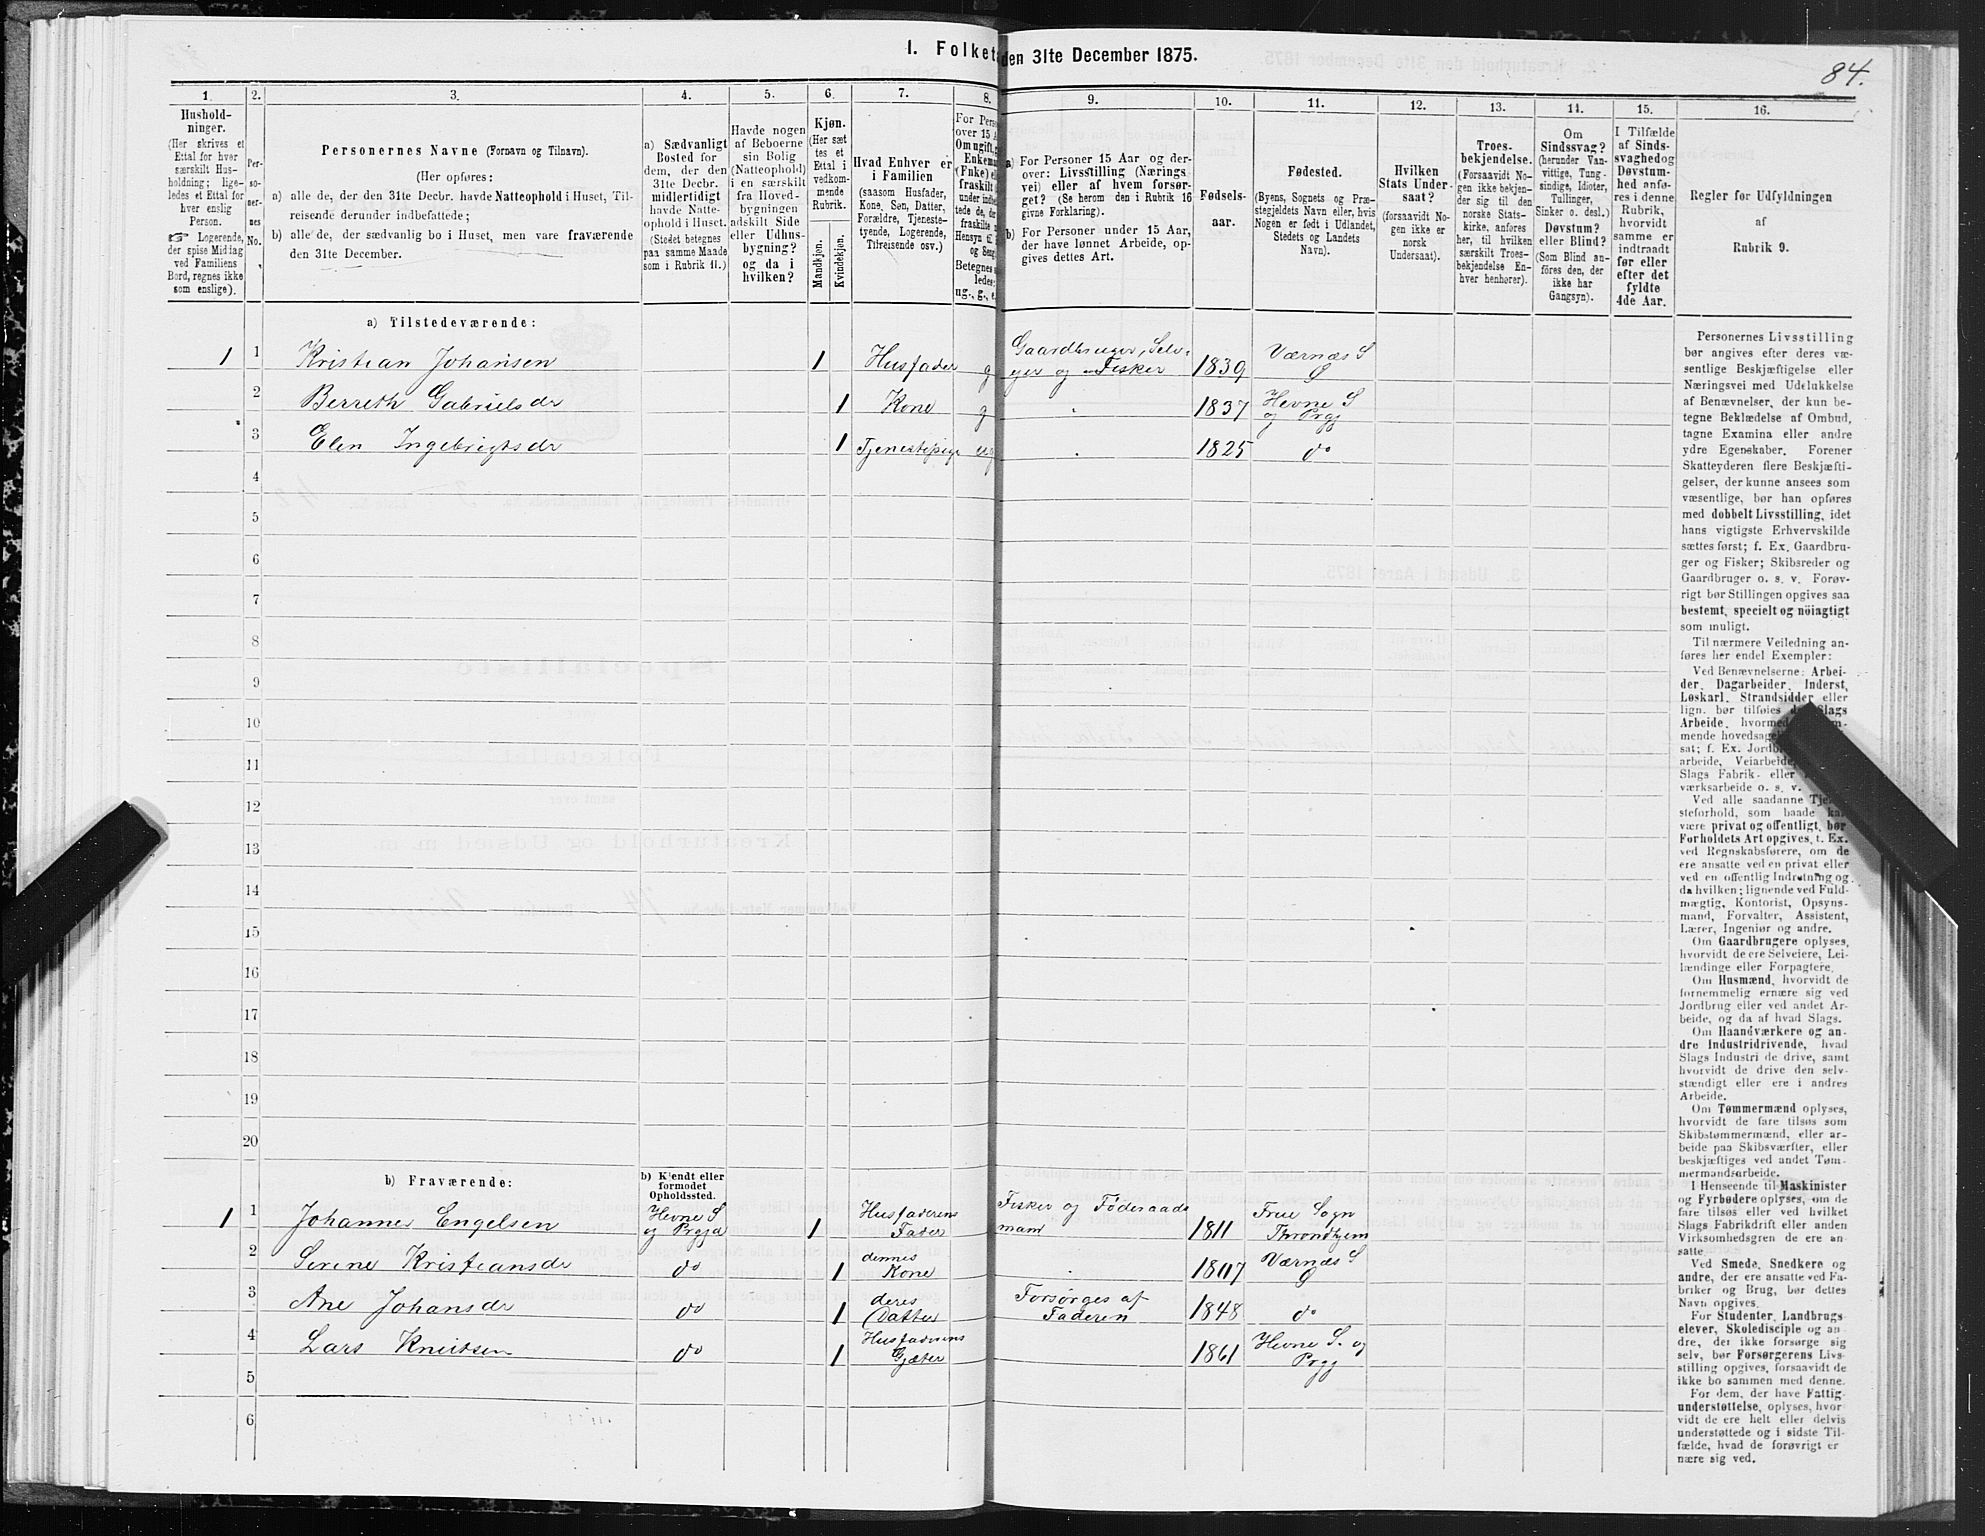 I. Folket den 31te December 1875.
84.
1. 2. 3. 4. 5. 6. 7. 8. 9. 10. 11. 12. 13. 14. 15. 16.
Hushold-
ninger.
(Her skrives et
Ettal for hver
særskilt Hus-
holdning; lige-
ledes et Ettal for
hver enslig
Person.
☞ Logerende,
der spise Middag
ved Familiens
Bord, regnes ikke
som enslige).
Per-
so-
ner-
nes
No.
Personernes Navne (Fornavn og Tilnavn).
(Her opføres:
a) alle de, der den 31te Decbr. havde Natteophold i Huset, Til-
reisende derunder indbefattede;
b) alle de, der sædvanlig bo i Huset, men vare fraværende
den 31te December.
a) Sædvanligt
Bosted for
dem, der den
31te Decbr.
midlertidigt
havde Natte-
ophold i Huset.
(Stedet betegnes
paa samme Maade
som i Rubrik 11.)
Havde nogen
af Beboerne
sin Bolig
(Natteophold)
i en særskilt
fra Hoved-
bygningen
adskilt Side
eller Udhus-
bygning?
og da i
hvilken?
Kjøn.
(Her sæt
tes et
Ettal i
vedkom-
mende
Rubrik.
Mandkjøn.
Kvindekjøn.
Hvad Enhver er
i Familien
(saasom Husfader,
Kone, Søn, Datter,
Forældre, Tjeneste-
tyende, Logerende,
Tilreisende osv.)
For Perso
over 15 A
Om ugift, g
Enkem
(Enke) e
fraskilt
under indbe
tede de, de
fraskilte
Hensyn til
og Seng
Betegnes
ledes:
ug., g., e
a) For Personer 15 Aar og der-
over: Livsstilling (Nærings
vei) eller af hvem forsør-
get? (Se herom den i Rubrik 16
givne Forklaring).
b) For Personer under 15 Aar,
der have lønnet Arbeide, op-
gives dettes Art.
Fødsels-
aar.
Fødested.
(Byens, Sognets og Præ-
stegjeldets Navn eller, hvis
Nogen er født i Udlandet,
Stedets og Landets
Navn).
Hvilken
Stats Under-
saat?
(forsaavidt No-
gen ikke er
norsk
Undersaat).
Troes-
bekjendelse.
(Forsaavidt No-
gen ikke bekjen-
der sig til den
norske Stats-
kirke, anføres
her, til hvilken
særskilt Troes-
bekjendelse En-
hver henhører).
Om
Sindssvag?
(herunder Van-
vittige, Tung-
sindige, Idioter,
Tullinger,
Sinker o. desl.)
Døvstum?
eller Blind?
(Som Blind an-
føres den, der
ikke har
Gangsyn).
I Tilfælde
af Sinds-
svaghed og
Døvstum-
hed anfø-
res i denne
Rubrik,
hvorvidt
samme er
indtraadt
før eller
efter det
fyldte
4de Aar.
Regler for Udfyldningen
af
Rubrik 9.
a) Tilstedeværende:
1 1 Kristian Johansen 1 Husfader g Gaardbruger, Selv-
eier og Fisker 1839 Værnæs S
Ø
2 Berreth Gabrielsdr 1 Kone g 1837 Hevne S
og Prgj
3 Elen Ingebrigtsdr 1 Tjenestepige ug 1825 do
4
5
6
7
8
9
10
11
12
13
14
15
16
17
18
19
20
b) Fraværende:
b) Kjendt eller
formodet
Opholdssted.
1 1 Johannes Engelsen Hevne S
og Prgjd 1 Husfaderens
Fader Fisker og Föderaads
mand 1811 Frue Sogn
Throndhjem
2 Serine Kristiansdr do 1 dennes
Kone 1807 Værnæs S
Ø
3 Ane Johansdr do 1 deres
Datter Forsørges af
Faderen 1848 do
4 Lars Knutsen do 1 Husfaderens
Gjæter 1861 Hevne S. og
Prgj
5
6
Personernes Livsstilling
bør angives efter deres væ-
sentlige Beskjæftigelse eller
Næringsvei med Udelukkelse
af Benævnelser, der kun be-
tegne Beklædelse af Ombud,
tagne Examina eller andre
ydre Egenskaber. Forener
Skatteyderen flere Beskjæfti-
gelser, der kunne ansees som
væsentlige, bør han opføres
med dobbelt Livsstilling, idet
hans vigtigste Erhvervskilde
sættes først; f. Ex. Gaardbru-
ger og Fisker; Skibsreder og
Gaardbruger o. s. v. Forøv-
rigt bør Stillingen opgives saa
bestemt, specielt og nöiagtigt
som muligt.
Til nærmere Veiledning an-
føres her endel Exempler:
Ved Benævnelserne: Arbei-
der, Dagarbeider, Inderst,
Løskarl, Strandsidder eller
lign. bør tilføies Slags
Arbeide, hvormed
mende hovedsage
sat; f. Ex. Jordb
arbeide, Veiarbeide,
Slags Fabrik- eller
værksarbeide o. s. v.
Ved alle saadanne Tje
steforhold, som baade kan
være privat og offentligt, bør
Forholdets Art opgives, t. Ex.
ved Regnskabsførere, om de
ere ansatte ved en privat eller
ved en offentlig Indretning og
da hvilken; lignende ved Fuld-
mægtig, Kontorist, Opsyns-
mand, Forvalter, Assistent,
Lærer, Ingeniør og andre.
Om Gaardbrugere oplyses,
hvorvidt de ere Selveiere, Lei-
lændinge eller Forpagtere.
Om Husmænd, hvorvidt de
fornemmelig ernære sig ved
Jordbrug eller ved andet Ar-
beide, og da af hvad Slags.
Om Haandværkere og an-
dre Industridrivende, hvad
Slags Industri de drive, samt
hvorvidt de drive den selv-
stændigt eller ere i andres
Arbeide.
Om Tømmermænd oplyses,
hvorvidt de fare tilsøs som
Skibstømmermænd, eller ar-
beide paa Skibsværfter, eller
beskjæftiges ved andet Tøm-
mermandsarbeide.
I Henseende til Maskinister
og Fyrbødere oplyses, om de
fare tilsøs eller ved hvilket
Slags Fabrikdrift eller anden
Virksomhedsgren de ere an-
satte.
Ved Smede, Snedkere og
andre, der ere ansatte ved Fa-
briker og Brug, bør dettes
Navn opgives.
For Studenter, Landbrugs-
elever, Skoledisciple og an-
dre, der ikke forsørge sig
selv, bør Forsørgerens Livs-
stilling opgives, forsaavidt de
ikke bo sammen med denne.
For dem, der have Fattig-
understøttelse, oplyses, hvor
vidt de ere helt eller delvis
understøttede og i sidste Til-
fælde, hvad de forøvrigt er
nære sig ved.